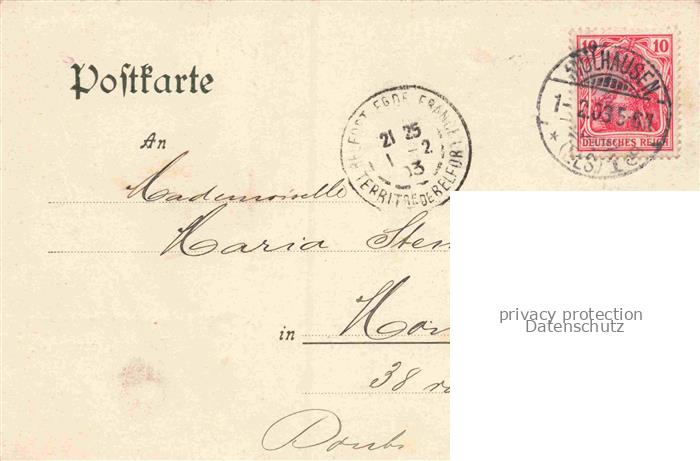 Postkarte
An
Mademoiselle
Maria Sten
in
38
Doubs
BELFORT
TERRIT. DE BELFORT
21 25
1 - 2
03
10 10
DEUTSCHES REICH
MÜLHAUSEN
1 2.03 5-6
(ELS) 1
privacy protection
Datenschutz